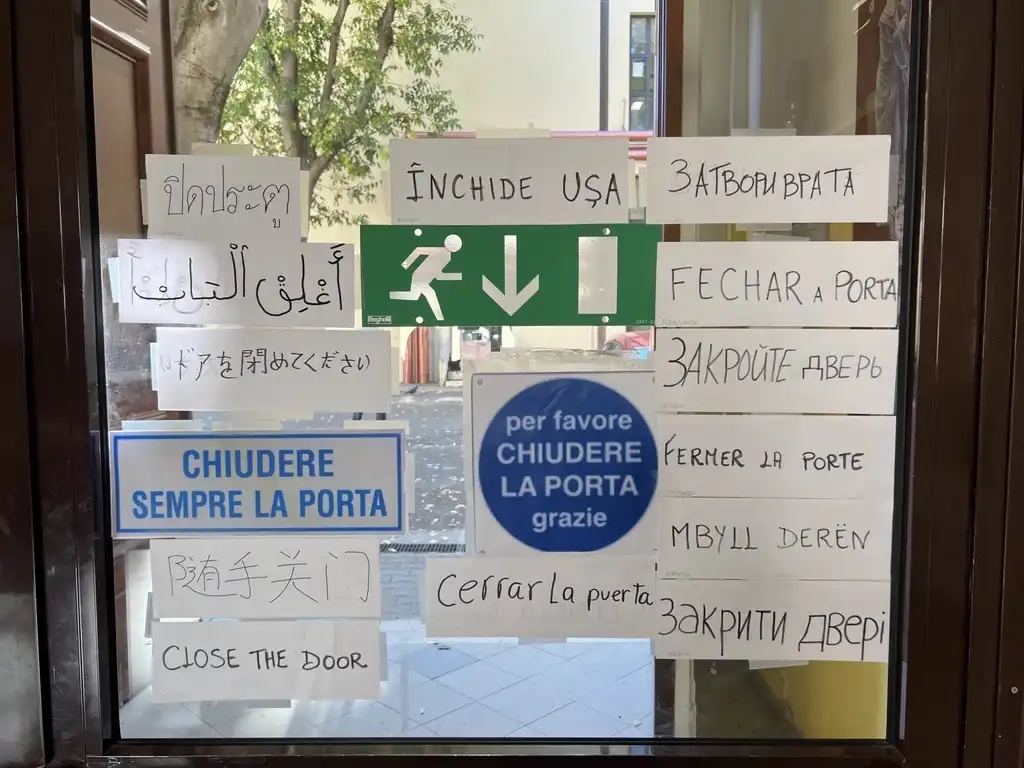 ปิดประตู
أَغْلِقْ اَلْبَابَ
ドアを閉めてください
CHIUDERE
SEMPRE LA PORTA
随手关门
CLOSE THE DOOR
ÎNCHIDE UŞA
Beghelli
per favore
CHIUDERE
LA PORTA
grazie
Cerrar La puerta
ЗАТВОРИ ВРАТА
FECHAR A PORTA
ЗАКРОЙТЕ ДВЕРЬ
FERMER LA PORTE
MBYLL DERËN
Закрити двері